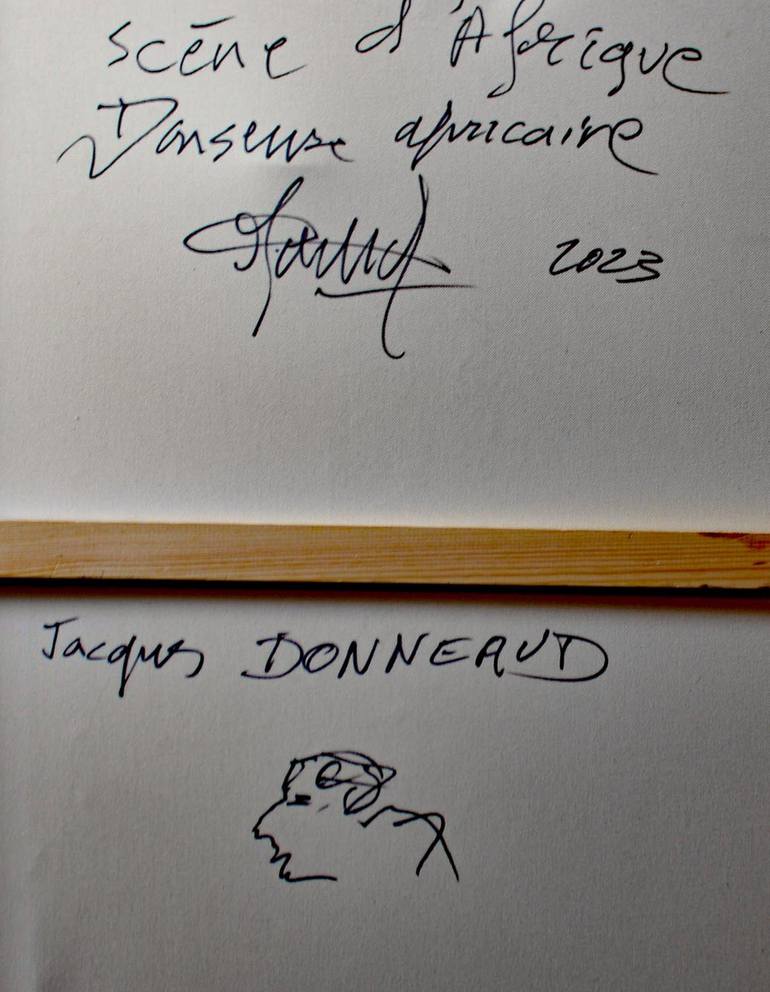 scène d'Afrique
Danseuse africaine
2023
Jacques DONNEAUD